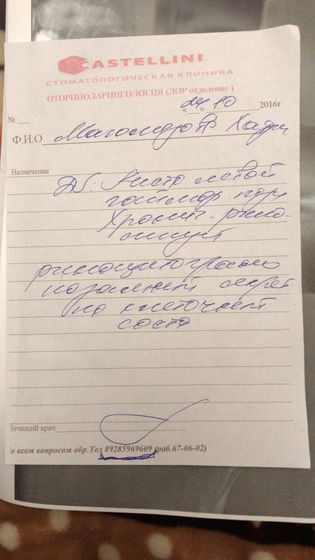 CASTELLINI
СТОМАТОЛОГИЧЕСКАЯ КЛИНИКА
ОТОРИНОЛАРИНГОЛОГИЯ (ЛОР отделение )
№ „24“ 10 2016г
Ф.И.О Магомедов Хаджи
Назначение
DS: Киста левой
гаймор пазу
Хронич. рино-
синусит
риноцитограмма
назальный секрет
на клеточный
состав
лечащий врач
о всем вопросом обр.Тел 89285969609 (раб.67-06-02)